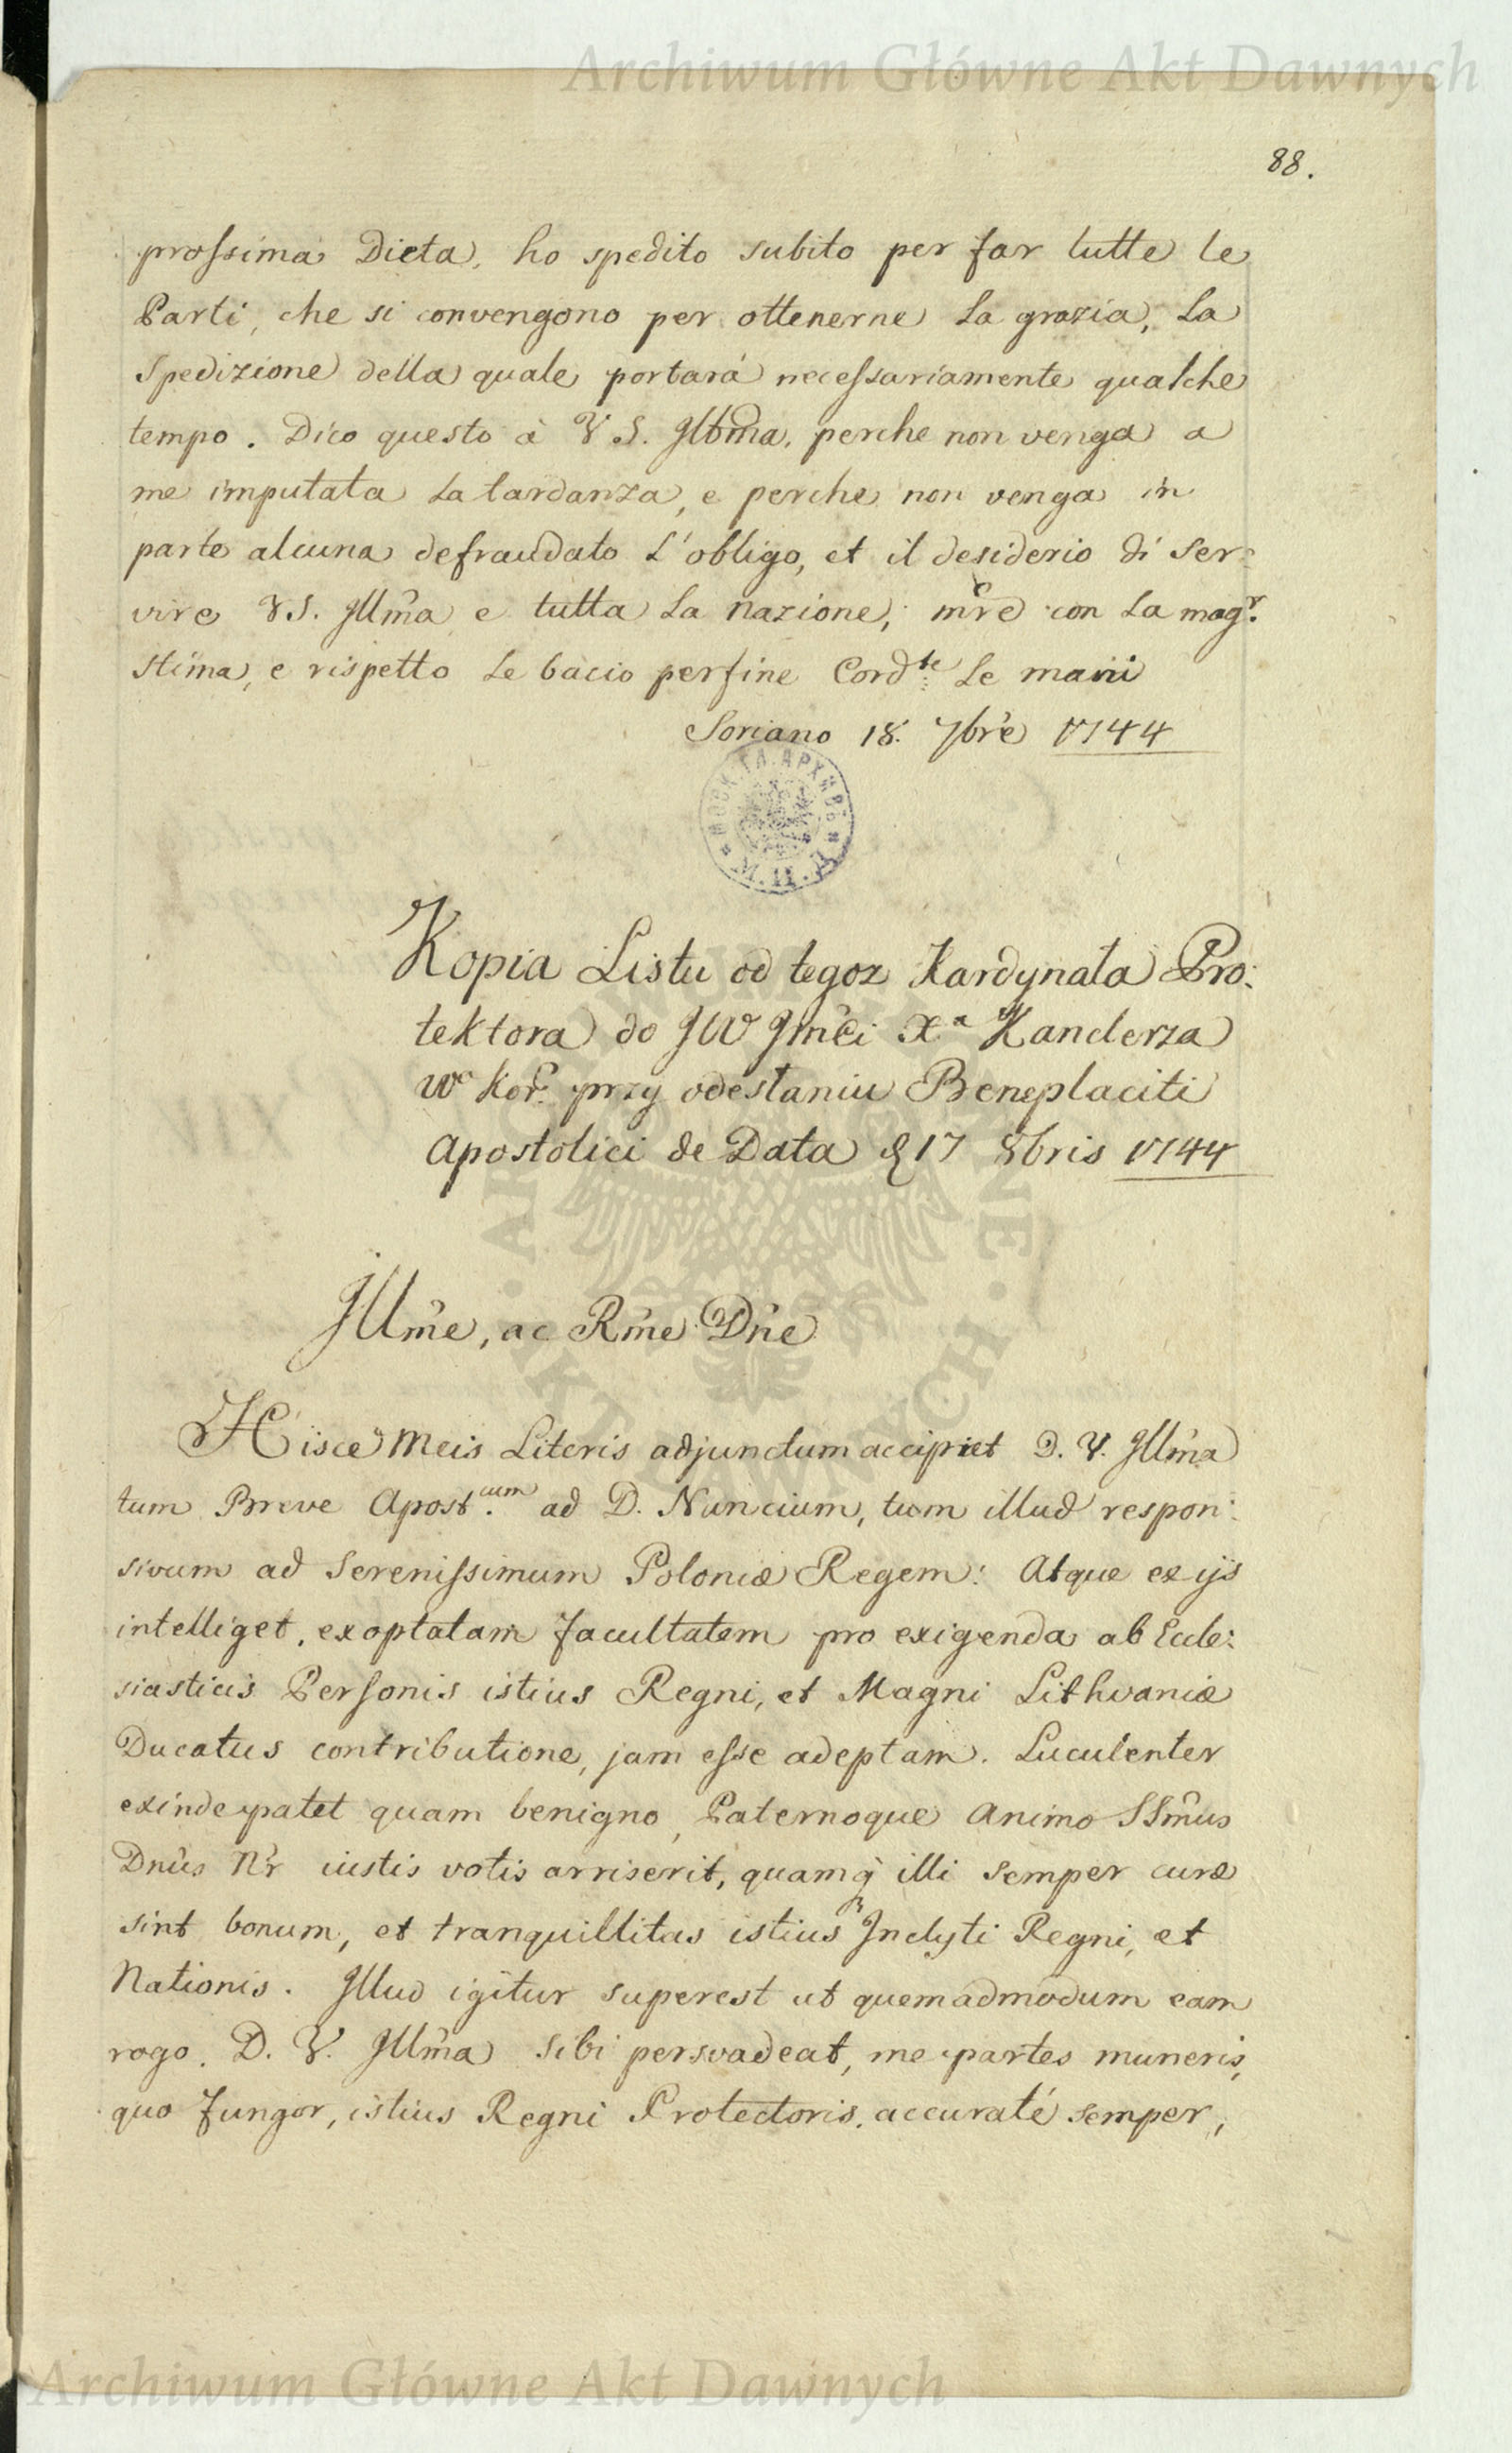 Archiwum Główne Akt Dawnych
88.
prossima Dieta, ho spedito subito per far tutte le
Parti, che si convengono per ottenerne la grazia, la
spedizione della quale portarà necessariamente qualche
tempo. Dico questo à V S. Illma, perche non venga a
me imputata la tardanza, e perche non venga in
parte alcuna defraudato l'obligo, et il desiderio di ser:
vire VS. Illma e tutta la nazione, mre con la magr.
stima, e rispetto le bacio per fine Cordte le mani
Soriano 18. 7bre 1744
МОСК. ГЛ. АРХИВЪ
М.И.Д.
Kopia Listu od tegoz Kardynała Pro:
tektora do JW Jmci Xa Kanclerza
Wo Kor. przy odesłaniu Beneplaciti
Apostolici de Data d 17 8bris 1744
Illme, ac Rme Dne
Hisce meis Literis adjunctum accipiet D. V. Illma
tum Breve Apostcum. ad D. Nuncium, tum illud respon:
sivum ad Serenissimum Poloniæ Regem: Atque ex ijs
intelliget, exoptatam facultatem pro exigenda ab Eccle:
siasticis Personis istius Regni, et Magni Lithvaniæ
Ducatus contributione, jam esse adeptam. Luculenter
exinde patet quam benigno, Paternoque Animo SSmus
Dnus Nr iustis votis arriserit, quamq illi semper curæ
sint bonum, et tranquillitas istius Inclyti Regni, et
Nationis. Illud igitur superest ut quemadmodum eam
rogo. D. V. Illma sibi persvadeat, me partes muneris,
quo fungor, istius Regni Protectoris, accuraté semper,
ARCHIWUM GŁÓWNE AKT DAWNYCH
Archiwum Główne Akt Dawnych